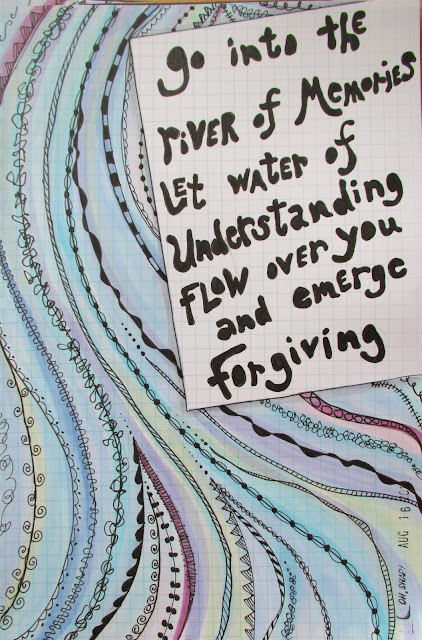 go into the
river of Memories
Let water of
Understanding
flow over you
and emerge
forgiving
AUG 16